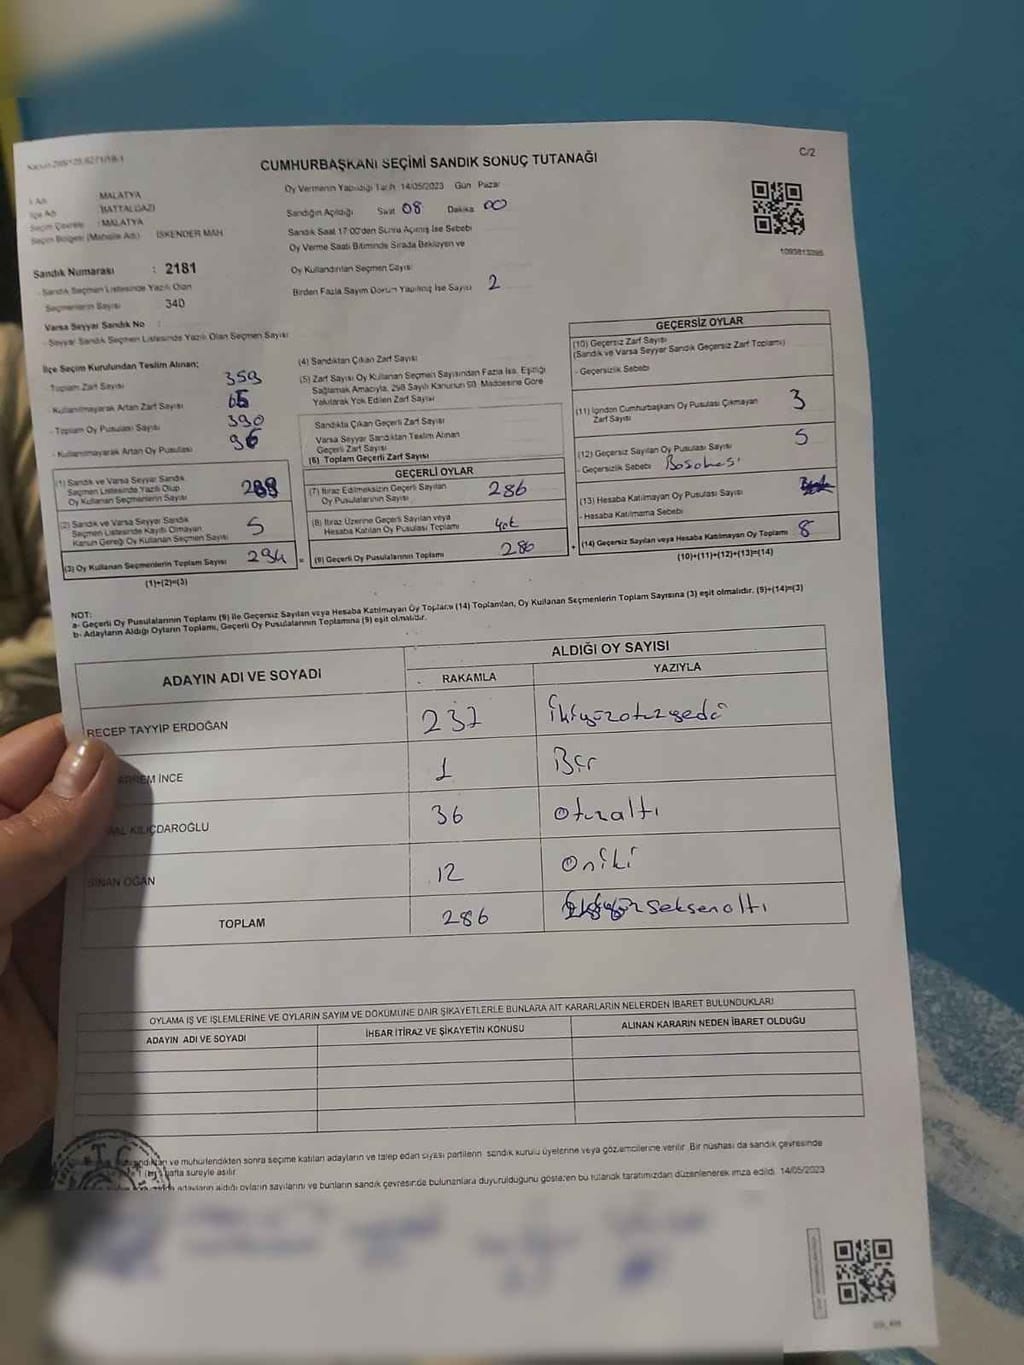 CUMHURBAŞKANI SEÇİMİ SANDIK SONUÇ TUTANAĞI
C/2
İl Adı : MALATYA
İlçe Adı : BATTALGAZİ
Seçim Çevresi : MALATYA
Seçim Bölgesi (Mahalle Adı) İSKENDER MAH
Sandık Numarası : 2181
- Sandık Seçmen Listesinde Yazılı Olan
Seçmenlerin Sayısı 340
Varsa Seyyar Sandık No :
- Seyyar Sandık Seçmen Listesinde Yazılı Olan Seçmen Sayısı
Oy Vermenin Yapıldığı Tarih 14/05/2023 Gün Pazar
Sandığın Açıldığı Saat 08 Dakika 00
Sandık Saat 17:00'den Sonra Açılmış İse Sebebi
Oy Verme Saati Bitiminde Sırada Bekleyen ve
Oy Kullandırılan Seçmen Sayısı
Birden Fazla Sayım Döküm Yapılmış İse Sayısı 2
İlçe Seçim Kurulundan Teslim Alınan;
- Toplam Zarf Sayısı 359
- Kullanılmayarak Artan Zarf Sayısı
- Toplam Oy Pusulası Sayısı 390
- Kullanılmayarak Artan Oy Pusulası 96
(1) Sandık ve Varsa Seyyar Sandık
Seçmen Listesinde Yazılı Olup
Oy Kullanan Seçmenlerin Sayısı 289
(2) Sandık ve Varsa Seyyar Sandık
Seçmen Listesinde Kayıtlı Olmayan
Kanun Gereği Oy Kullanan Seçmen Sayısı 5
(3) Oy Kullanan Seçmenlerin Toplam Sayısı 294
(1)+(2)=(3)
(4) Sandıktan Çıkan Zarf Sayısı
(5) Zarf Sayısı Oy Kullanan Seçmen Sayısından Fazla İse, Eşitliği
Sağlamak Amacıyla, 298 Sayılı Kanunun 98. Maddesine Göre
Yakılarak Yok Edilen Zarf Sayısı
Sandıkta Çıkan Geçerli Zarf Sayısı
Varsa Seyyar Sandıktan Teslim Alınan
Geçerli Zarf Sayısı
(6) Toplam Geçerli Zarf Sayısı
GEÇERLİ OYLAR
(7) İtiraz Edilmeksizin Geçerli Sayılan
Oy Pusulalarının Sayısı 286
(8) İtiraz Üzerine Geçerli Sayılan veya
Hesaba Katılan Oy Pusulası Toplamı yok
= (9) Geçerli Oy Pusulalarının Toplamı 286
GEÇERSİZ OYLAR
(10) Geçersiz Zarf Sayısı
(Sandık ve Varsa Seyyar Sandık Geçersiz Zarf Toplamı)
- Geçersizlik Sebebi
(11) İçinden Cumhurbaşkanı Oy Pusulası Çıkmayan
Zarf Sayısı 3
(12) Geçersiz Sayılan Oy Pusulası Sayısı 5
- Geçersizlik Sebebi
(13) Hesaba Katılmayan Oy Pusulası Sayısı
- Hesaba Katılmama Sebebi
+ (14) Geçersiz Sayılan veya Hesaba Katılmayan Oy Toplamı 8
(10)+(11)+(12)+(13)=(14)
NOT:
a- Geçerli Oy Pusulalarının Toplamı (9) ile Geçersiz Sayılan veya Hesaba Katılmayan Oy Toplamı (14) Toplamları, Oy Kullanan Seçmenlerin Toplam Sayısına (3) eşit olmalıdır. (9)+(14)=(3)
b- Adayların Aldığı Oyların Toplamı, Geçerli Oy Pusulalarının Toplamına (9) eşit olmalıdır.
ADAYIN ADI VE SOYADI
ALDIĞI OY SAYISI
RAKAMLA YAZIYLA
RECEP TAYYIP ERDOĞAN 237 İkiyüzotuzyedi
İNCE 1 Bir
KILIÇDAROĞLU 36 otuzaltı
SİNAN OĞAN 12 Oniki
TOPLAM 286 İkiyüzseksenaltı
OYLAMA İŞ VE İŞLEMLERİNE VE OYLARIN SAYIM VE DÖKÜMÜNE DAİR ŞİKAYETLERLE BUNLARA AİT KARARLARIN NELERDEN İBARET BULUNDUKLARI
ADAYIN ADI VE SOYADI İHBAR İTİRAZ VE ŞİKAYETİN KONUSU ALINAN KARARIN NEDEN İBARET OLDUĞU
T.C.
ve mühürlendikten sonra seçime katılan adayların ve talep eden siyasi partilerin sandık kurulu üyelerine veya gözlemcilerine verilir. Bir nüshası da sandık çevresinde
hafta süreyle asılır
adayların aldığı oyların sayılarını ve bunların sandık çevresinde bulunanlara duyurulduğunu gösteren bu tutanak tarafımızdan düzenlenerek imza edildi. 14/05/2023